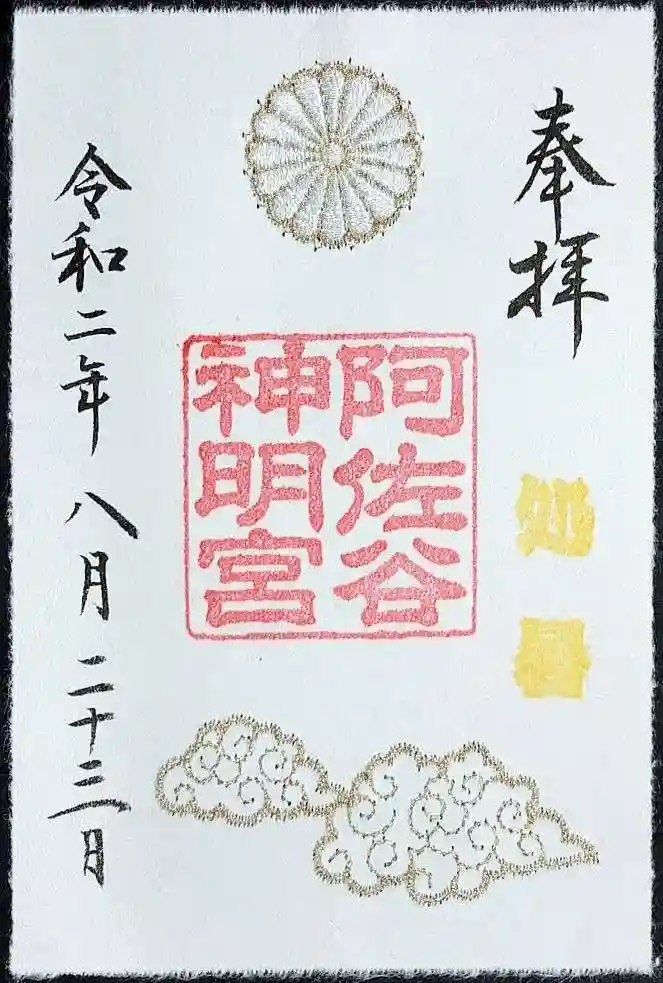 奉拝
処暑
阿佐谷
神明宮
令和二年八月二十三日